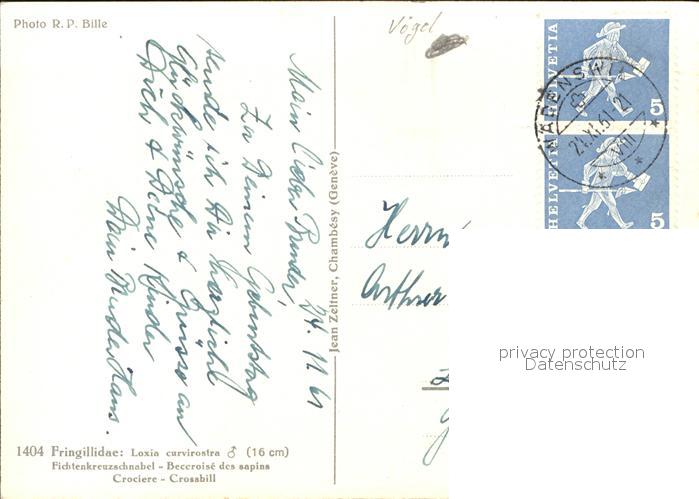 Photo R. P. Bille
Vögel
HELVETIA
5
WÄDENSWIL
24.XI.61-21
VIII
HELVETIA
5
24. XI. 61
Mein lieber Bruder,
Zu Deinem Geburtstag
sende ich Dir herzliche
Glückwünsche & Grüsse an
Dich & Deine Kinder
Dein Bruder Hans.
Jean Zeltner, Chambésy (Genève)
Herrn
Arthur
privacy protection
Datenschutz
1404 Fringillidae: Loxia curvirostra ♂ (16 cm)
Fichtenkreuzschnabel - Beccroisé des sapins
Crociere - Crossbill